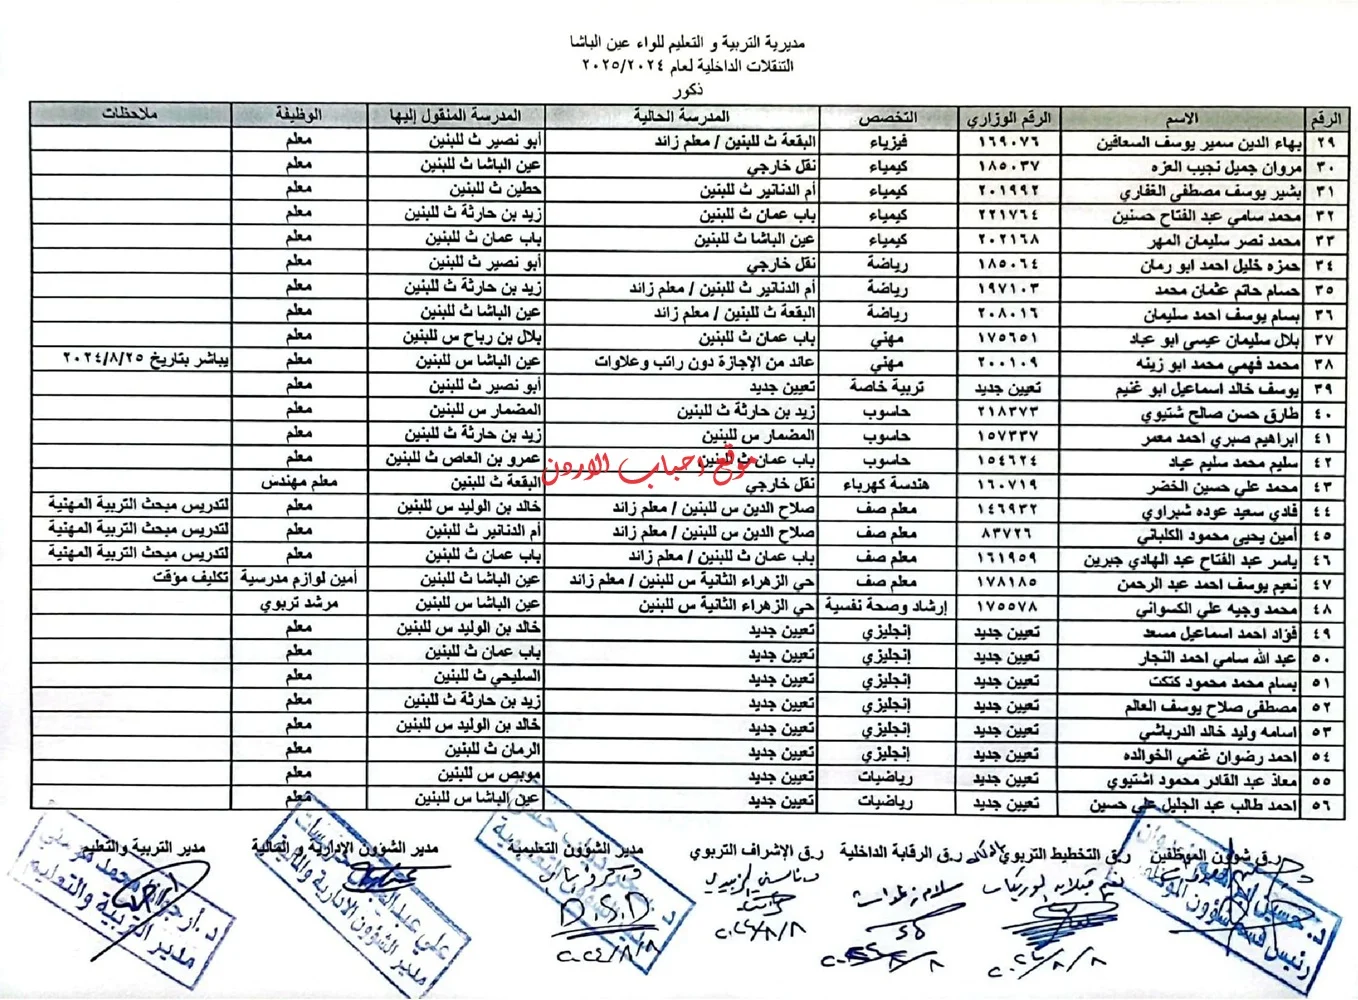 مديرية التربية و التعليم للواء عين الباشا
التنقلات الداخلية لعام ٢٠٢٥/٢٠٢٤
ذكور
الرقم الاسم الرقم الوزاري التخصص المدرسة الحالية المدرسة المنقول إليها الوظيفة ملاحظات
٢٩ بهاء الدين سمير يوسف السعافين ١٦٩٠٧٦ فيزياء البقعة ث للبنين / معلم زائد أبو نصير ث للبنين معلم
٣٠ مروان جميل نجيب العزه ١٨٥٠٣٧ كيمياء نقل خارجي عين الباشا ث للبنين معلم
٣١ بشير يوسف مصطفى الغفاري ٢٠١٩٩٢ كيمياء أم الدنانير ث للبنين حطين ث للبنين معلم
٣٢ محمد سامي عبد الفتاح حسنين ٢٢١٧٦٤ كيمياء باب عمان ث للبنين زيد بن حارثة ث للبنين معلم
٣٣ محمد نصر سليمان المهر ٢٠٢١٦٨ كيمياء عين الباشا ث للبنين باب عمان ث للبنين معلم
٣٤ حمزه خليل احمد ابو رمان ١٨٥٠٦٤ رياضة نقل خارجي أبو نصير ث للبنين معلم
٣٥ حسام حاتم عثمان محمد ١٩٧١٠٣ رياضة أم الدنانير ث للبنين / معلم زائد زيد بن حارثة ث للبنين معلم
٣٦ بسام يوسف احمد سليمان ٢٠٨٠١٦ رياضة البقعة ث للبنين / معلم زائد عين الباشا ث للبنين معلم
٣٧ بلال سليمان عيسى ابو عياد ١٧٥٦٥١ مهني باب عمان ث للبنين بلال بن رباح س للبنين معلم
٣٨ محمد فهمي محمد ابو زينه ٢٠٠١٠٩ مهني عائد من الإجازة دون راتب وعلاوات عين الباشا س للبنين معلم يباشر بتاريخ ٢٠٢٤/٨/٢٥
٣٩ يوسف خالد اسماعيل ابو غنيم تعيين جديد تربية خاصة تعيين جديد أبو نصير ث للبنين معلم
٤٠ طارق حسن صالح شتيوي ٢١٨٣٧٣ حاسوب زيد بن حارثة ث للبنين المضمار س للبنين معلم
٤١ ابراهيم صبري احمد معمر ١٥٧٣٣٧ حاسوب المضمار س للبنين زيد بن حارثة ث للبنين معلم
٤٢ سليم محمد سليم عياد ١٥٤٦٢٤ حاسوب باب عمان ث للبنين عمرو بن العاص ث للبنين معلم
موقع احباب الاردن
٤٣ محمد علي حسين الخضر ١٦٠٧١٩ هندسة كهرباء نقل خارجي البقعة ث للبنين معلم مهندس
٤٤ فادي سعيد عوده شبراوي ١٤٦٩٣٢ معلم صف صلاح الدين س للبنين / معلم زائد خالد بن الوليد س للبنين معلم لتدريس مبحث التربية المهنية
٤٥ أمين يحيى محمود الكلباني ٨٣٧٢٦ معلم صف صلاح الدين س للبنين / معلم زائد أم الدنانير ث للبنين معلم لتدريس مبحث التربية المهنية
٤٦ ياسر عبد الفتاح عبد الهادي جبرين ١٦١٩٥٩ معلم صف باب عمان ث للبنين / معلم زائد باب عمان ث للبنين معلم لتدريس مبحث التربية المهنية
٤٧ نعيم يوسف احمد عبد الرحمن ١٧٨١٨٥ معلم صف حي الزهراء الثانية س للبنين / معلم زائد عين الباشا ث للبنين أمين لوازم مدرسية تكليف مؤقت
٤٨ محمد وجيه علي الكسواني ١٧٥٥٧٨ إرشاد وصحة نفسية حي الزهراء الثانية س للبنين عين الباشا س للبنين مرشد تربوي
٤٩ فؤاد احمد اسماعيل مسعد تعيين جديد إنجليزي تعيين جديد خالد بن الوليد س للبنين معلم
٥٠ عبد الله سامي احمد النجار تعيين جديد إنجليزي تعيين جديد باب عمان ث للبنين معلم
٥١ بسام محمد محمود كتكت تعيين جديد إنجليزي تعيين جديد السليحي ث للبنين معلم
٥٢ مصطفى صلاح يوسف العالم تعيين جديد إنجليزي تعيين جديد زيد بن حارثة ث للبنين معلم
٥٣ اسامه وليد خالد الدرباشي تعيين جديد إنجليزي تعيين جديد خالد بن الوليد س للبنين معلم
٥٤ احمد رضوان غنمي الخوالده تعيين جديد إنجليزي تعيين جديد الرمان ث للبنين معلم
٥٥ معاذ عبد القادر محمود اشتيوي تعيين جديد رياضيات تعيين جديد موبص س للبنين معلم
٥٦ احمد طالب عبد الجليل علي حسين تعيين جديد رياضيات تعيين جديد عين الباشا س للبنين معلم
ر.ق شؤون الموظفين ر.ق التخطيط التربوي ر.ق الرقابة الداخلية ر.ق الإشراف التربوي مدير الشؤون التعليمية مدير الشؤون الإدارية و المالية مدير التربية والتعليم
٢٠٢٤/٨/٨ ٢٠٢٤/٨/٨ ٢٠٢٤/٨/٨
مدير التربية والتعليم
مدير الشؤون الادارية والمالية
رئيس قسم شؤون الموظفين